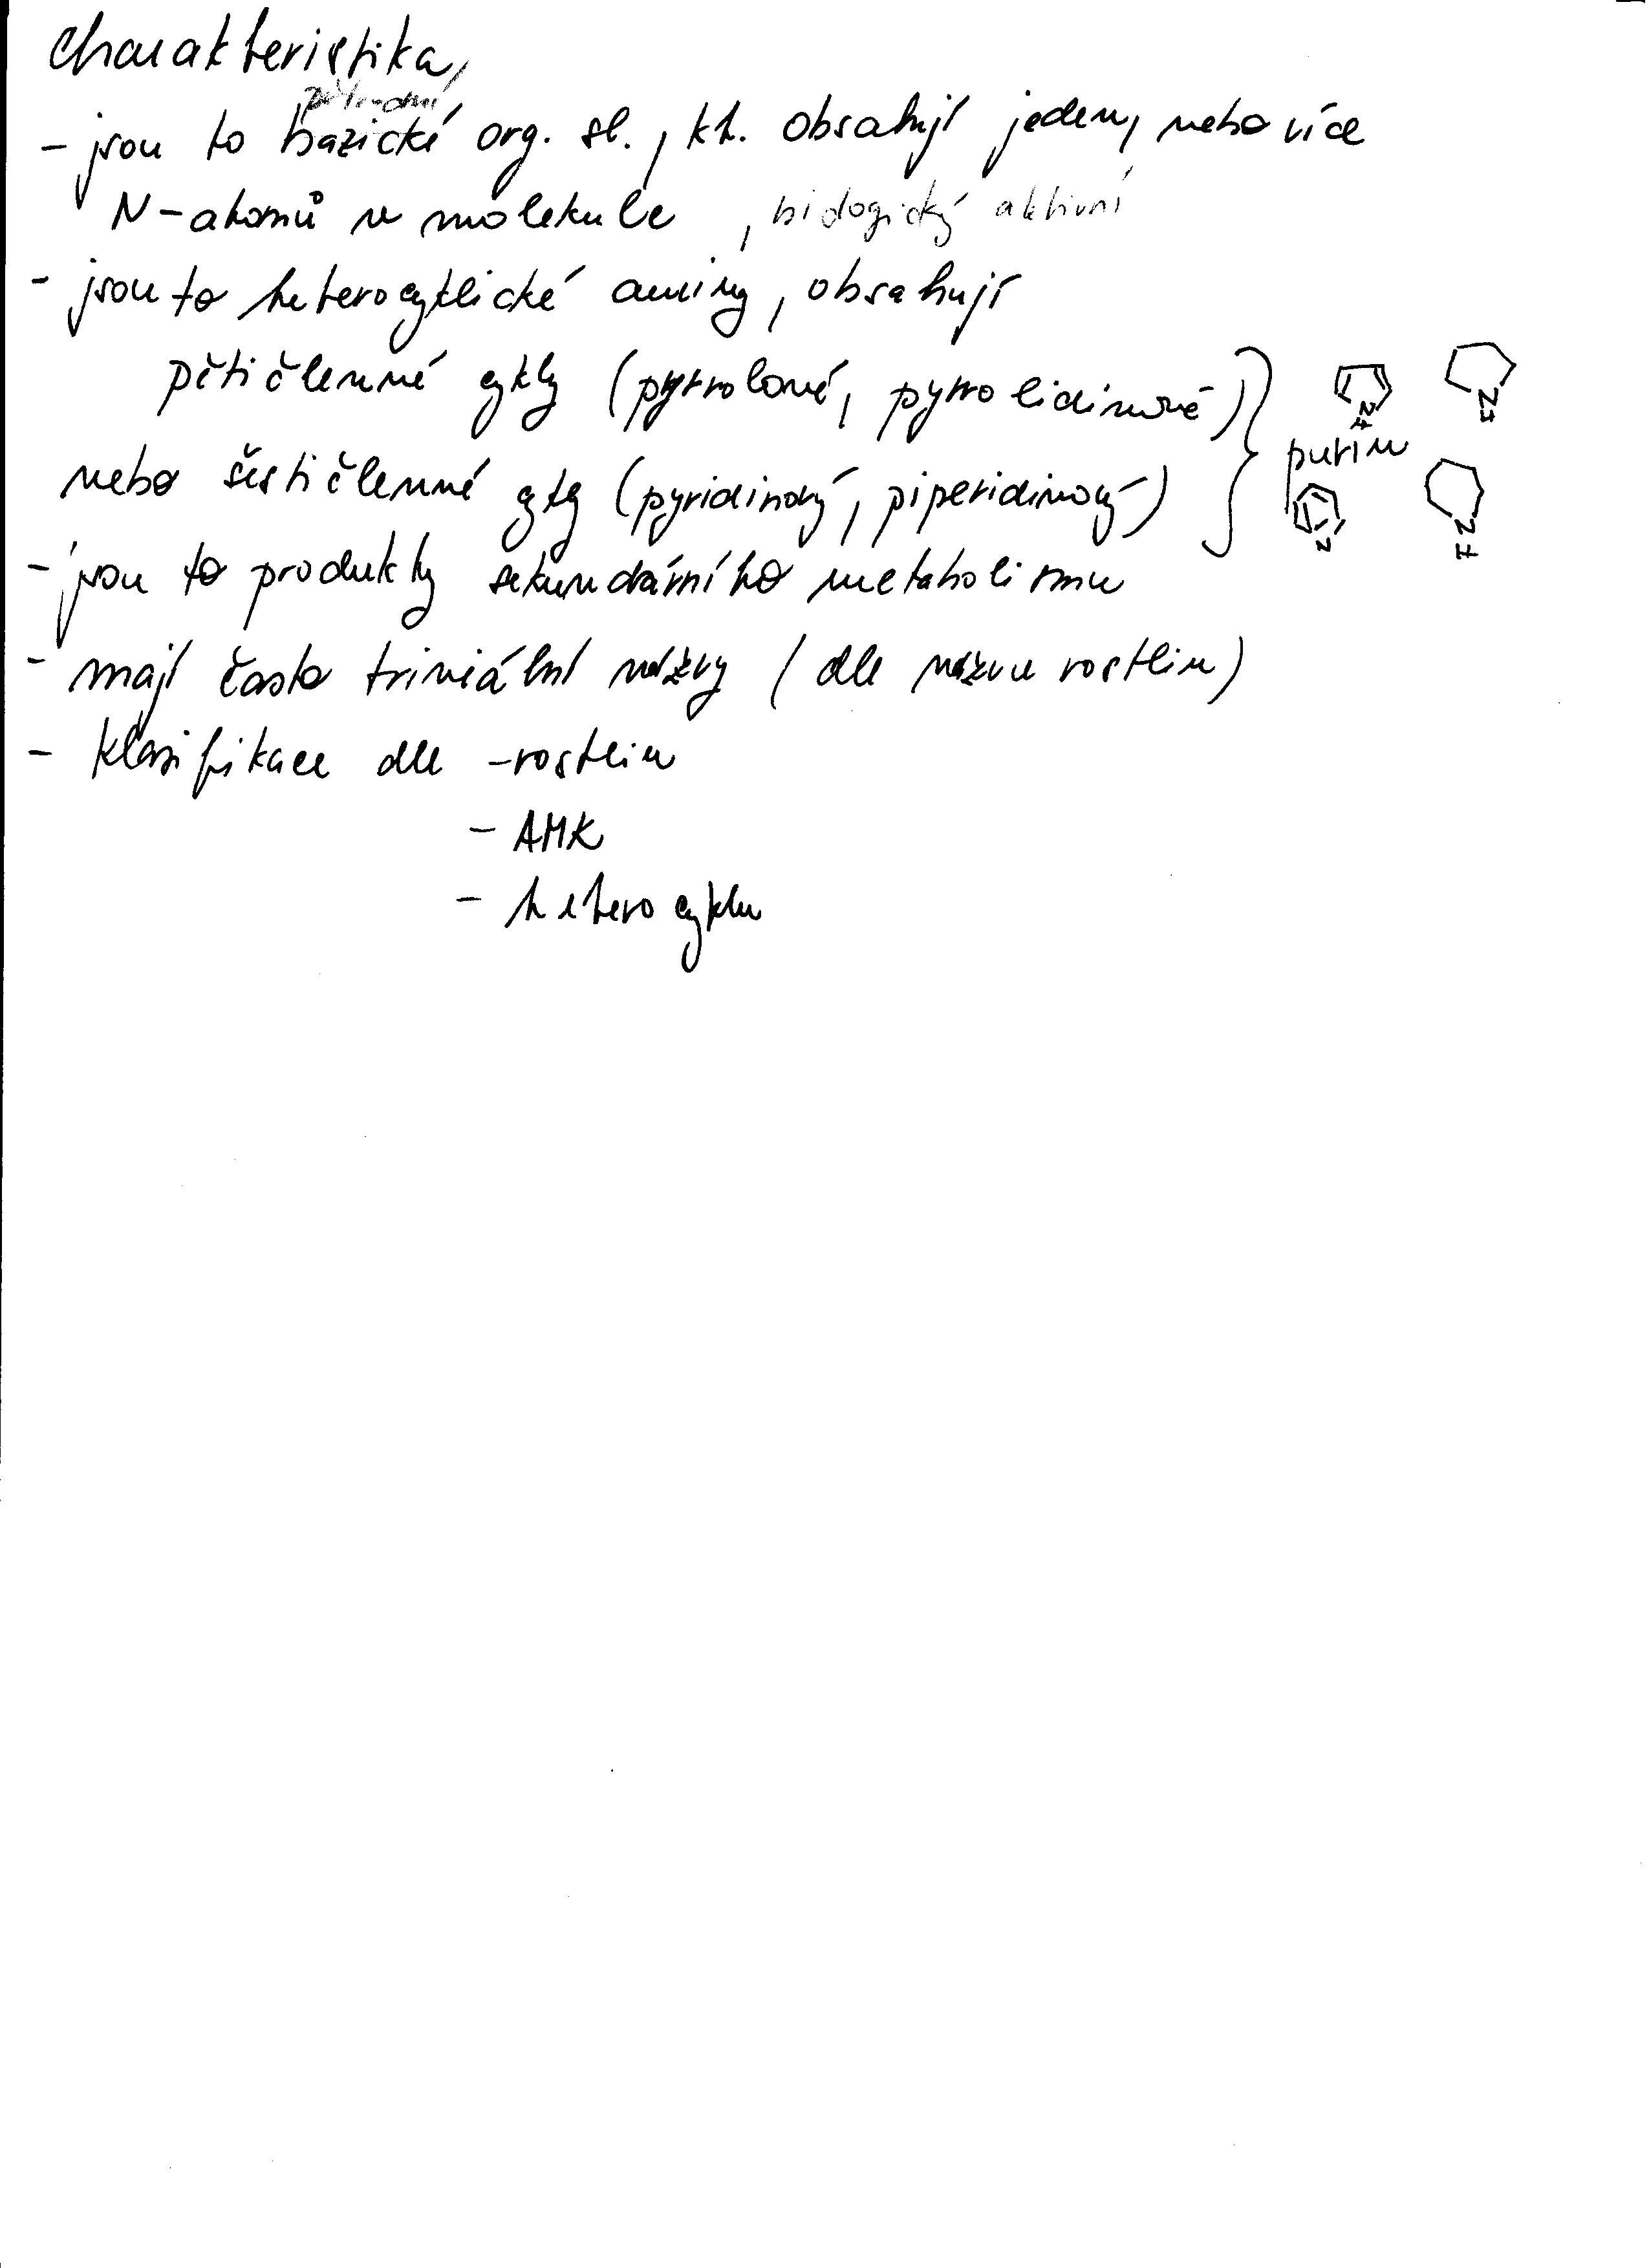 Charakteristika
přírodní
- jsou to bazické org. sl., kt. obsahují jeden, nebo více
N-atomů v molekule, biologický aktivní
- jsou to heterocyklické aminy, obsahují
pětičlenné cykly (pyrrolové, pyrrolidinové)
nebo šestičlenné cykly (pyridinový, piperidinový)
purin
- jsou to produkty sekundárního metabolismu
- mají často triviální názvy (dle názvu rostlin)
- klasifikace dle - rostlin
- AMK
- heterocyklu